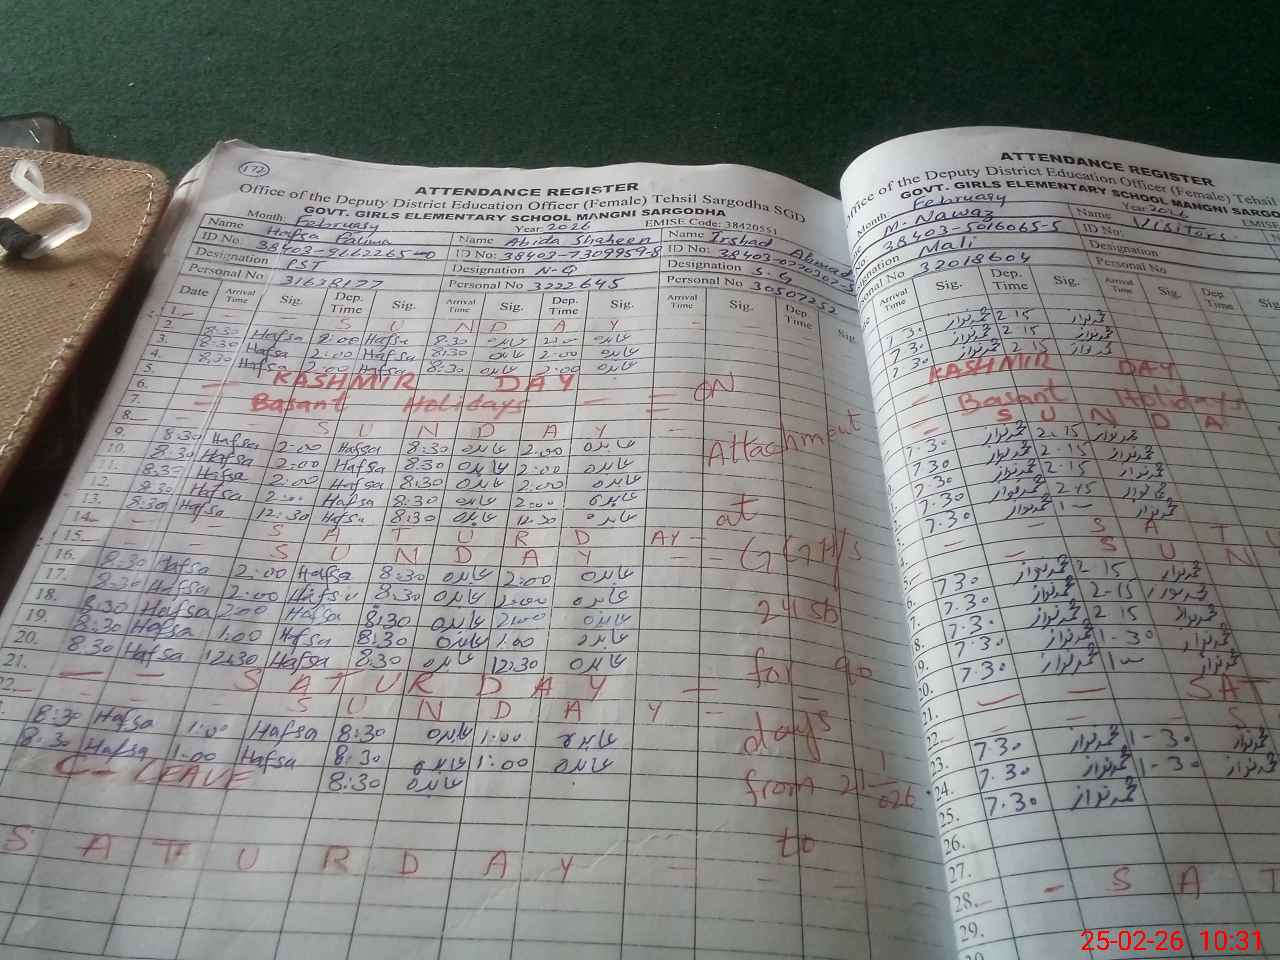 172
ATTENDANCE REGISTER
Office of the Deputy District Education Officer (Female) Tehsil Sargodha SGD
GOVT. GIRLS ELEMENTARY SCHOOL MANGNI SARGODHA
Month: February Year: 2026 EMISE Code: 38420551
Name Hafsa Fatima Name Abida Shaheen Name Irshad Ahmad
ID No: 38403-9162265-0 ID No: 38403-7309959-8 ID No:
Designation PST Designation N-Q Designation S-G
Personal No 31638177 Personal No 3222645 Personal No 30507252
Date Arrival Time Sig. Dep. Time Sig. Arrival Time Sig. Dep. Time Sig. Arrival Time Sig. Dep. Time Sig.
1. — S U N D A Y - -
2. 8:30 Hafsa 2:00 Hafsa 8:30 عابدہ 2:00 عابدہ
3. 8:30 Hafsa 2:00 Hafsa 8:30 عابدہ 2:00 عابدہ
4. 8:30 Hafsa 2:00 Hafsa 8:30 عابدہ 2:00 عابدہ
5. — KASHMIR DAY —
6. = Basant Holidays — =
7.
8. — — S U N D A Y -
9. 8:30 Hafsa 2:00 Hafsa 8:30 عابدہ 2:00 عابدہ
10. 8:30 Hafsa 2:00 Hafsa 8:30 عابدہ 2:00 عابدہ
11. 8:30 Hafsa 2:00 Hafsa 8:30 عابدہ 2:00 عابدہ
12. 8:30 Hafsa 2:00 Hafsa 8:30 عابدہ 2:00 عابدہ
13. 8:30 Hafsa 12:30 Hafsa 8:30 عابدہ 12:30 عابدہ
14. — — S A T U R D AY -
15. — — S U N D A Y - =
16. 8:30 Hafsa 2:00 Hafsa 8:30 عابدہ 2:00 عابدہ
17. 8:30 Hafsa 2:00 Hafsa 8:30 عابدہ 2:00 عابدہ
18. 8:30 Hafsa 2:00 Hafsa 8:30 عابدہ 2:00 عابدہ
19. 8:30 Hafsa 1:00 Hafsa 8:30 عابدہ 1:00 عابدہ
20. 8:30 Hafsa 12:30 Hafsa 8:30 عابدہ 12:30 عابدہ
21. — — S A T U R D A Y — —
22. - - - S U N D A Y - -
8:30 Hafsa 1:00 Hafsa 8:30 عابدہ 1:00 عابدہ
8:30 Hafsa 1:00 Hafsa 8:30 عابدہ 1:00 عابدہ
C- LEAVE 8:30 عابدہ
S A T U R D A Y - -
ON
Attachment
at
GGH/S
for 90
days
from 21
to
ATTENDANCE REGISTER
ffice of the Deputy District Education Officer (Female) Tehsil
GOVT. GIRLS ELEMENTARY SCHOOL MANGNI SARGO
Month: February Year 2026 EMISE
M. Nawaz Name Visitors
38403-5016065-5 ID No:
ignation Mali Designation
onal No 32018604 Personal No
Arrival Time Sig. Dep. Time Sig. Arrival Time Sig. Dep. Time Sig.
7 30 محمد نواز 2 15 محمد نواز
7 30 محمد نواز 2 15 محمد نواز
7 30 محمد نواز 2 15 محمد نواز
KASHMIR DAY
- Basant Holidays
- S U N D A
7.30 محمد نواز 2.15 محمد نواز
7 30 محمد نواز 2.15 محمد نواز
7.30 محمد نواز 2-15 محمد نواز
7.30 محمد نواز 2-15 محمد نواز
7.30 محمد نواز 1- محمد نواز
— — S A T U
— — S U N
7 30 محمد نواز 2-15 محمد نواز
7.30 محمد نواز 2-15 محمد نواز
7.30 محمد نواز 2 15 محمد نواز
7.30 محمد نواز 1-30 محمد نواز
7.30 محمد نواز 1- محمد نواز
20.
21. — — SAT
22. - - - S
23. 7.30 محمد نواز 1-30 محمد نواز
24. 7.30 محمد نواز 1-30 محمد نواز
25. 7.30 محمد نواز
26.
27.
28. - S A T
29.
25-02-26 10:31